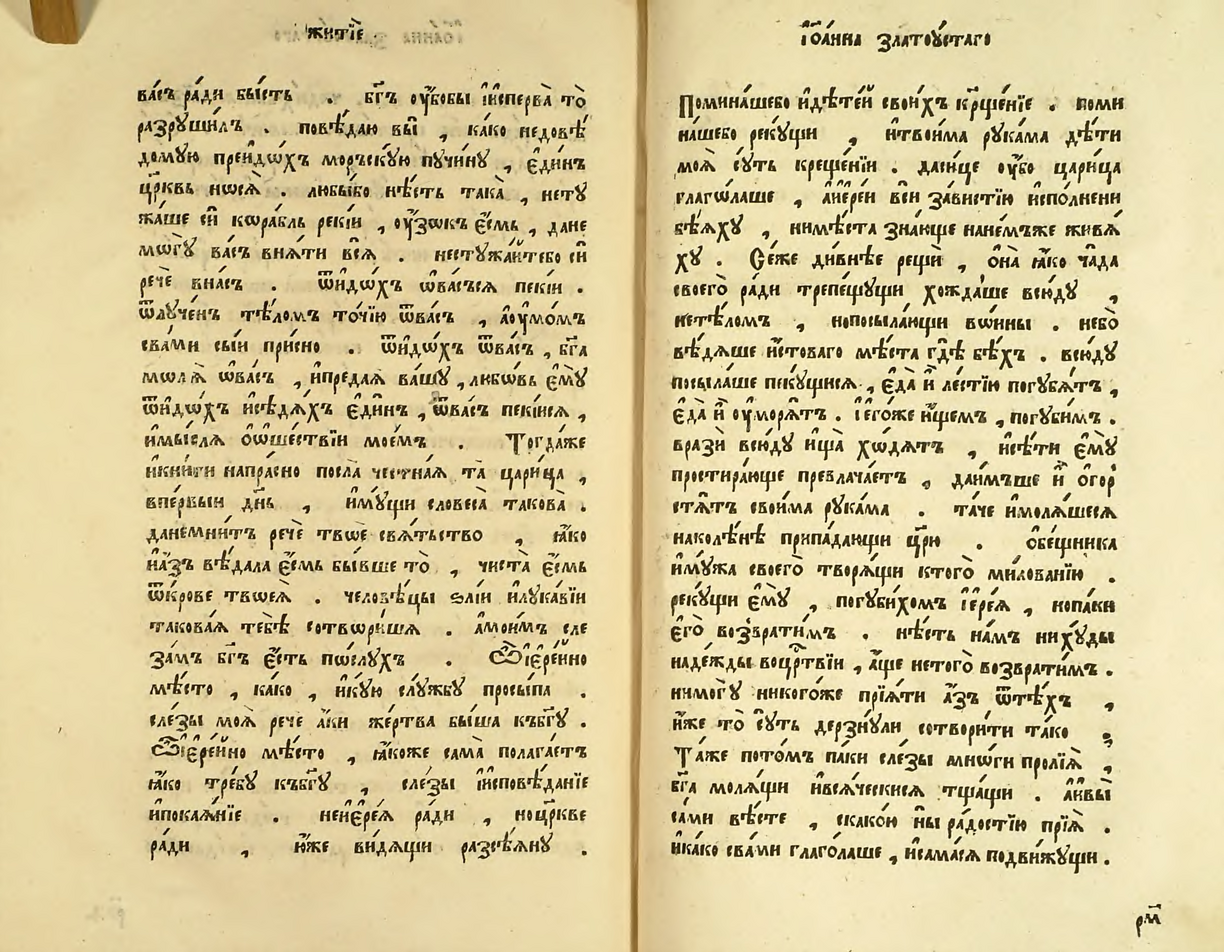 житїѐ
ва́съ ра́ди бы́сть . бг҃ъ оу҆́бобы и҆́исперва̀ то̀
разруши́лъ . повѣ́даю вы̀ , ка́ко недовѣ́
до́мую преи́дохъ морьску́ю пучи́ну , є҆ди́нъ
цр҃квь носѧ̀ . любы́бо нѣ́сть така̀ , нетѹ́
жа́ше си́й кѡра́бль реки́й , оу҆́зокъ є҆́смь , дане
могѹ̀ ва́съ внѧ́ти всѧ̀ . нестѹжа́йтебо сѝ
речѐ вна́съ . ѿидо́хъ ѡва́съсѧ пекі́й .
ѿлу́ченъ тѣ́ломъ то́чїю ѿва́съ , аоу҆мо́мъ
сва́ми сы́й при́сно . ѿидо́хъ ѿва́съ , бг҃а
молѧ̀ ѡва́съ , и҆предаѧ̀ ва́шѹ , любо́вь є҆мѹ̀
ѿидо́хъ и҆сѣдѧ́хъ є҆ди́нъ , ѡва́съ пекі́исѧ ,
и҆мы́слѧ ѡ҆ѡше́ствїи мое́мъ . Тогда́же
и҆кни́ги напра́сно посла̀ честна́ѧ та̀ цари́ца ,
впе́рвыи дн҃ь , и҆мѹ́щи словеса̀ такова̀ .
данемни́тъ речѐ твоѐ свѧ́тьство , ꙗ҆́ко
и҆а҆́зъ вѣ́дала є҆́смь бы́вше то̀ , чиста̀ є҆́смь
ѿкро́ве твоеѧ̀ . человѣ́цы ѕлі́и и҆лука́вїи
такова́ѧ тебѣ̀ сотвори́шѧ . а҆мои́мъ сле
за́мъ бг҃ъ є҆́сть по́слухъ . Ѽїере́йно
мѣ́сто , ка́ко , и҆ку́ю слу́жбѹ просы́па .
сле́зы моѧ̀ речѐ а҆́ки же́ртва бы́ша къбг҃ѹ .
Ѽїере́йно мѣ́сто , ꙗ҆́коже сама̀ полага́етъ
ꙗ҆́ко тре́бѹ къбг҃ѹ , сле́зы и҆́исповѣ́данїе
и҆покаѧ́нїе . неи҆ере́ѧ ра́ди , ноцр҃кве
ра́ди , ю҆́же ви́дѧщи разсѣ́ѧнѹ .
і҆ѡа́нна златоѹ́стаго
Помина́шебо и҆дѣте́й свои́хъ кр҃ще́нїе . поми
на́шебо реку́щи , и҆твои́ма рука́ма дѣ́ти
моѧ̀ сѹ́ть креще́нїи . даси́це оу҆́бо цари́ца
глаго́лаше , а҆їере́и всѝ за́вистїю и҆спо́лнени
бѣ́ѧхѹ , нимѣ́ста зна́юще нанемъже живѧ́
хѹ . Се́же ди́внѣе рещѝ , ѻ҆на̀ ꙗ҆́ко ча́да
своего̀ ра́ди трепе́щущи хожда́ше всю́дѹ ,
нетѣ́ломъ , нопосыла́ющи во́ины . небо̀
вѣ́дѧше и҆́стоваго мѣ́ста гдѣ̀ бѣ́хъ . всю́дѹ
посыла́ше пекѹ́щисѧ , є҆да̀ и҆̀ ле́стїю погубѧ́тъ ,
є҆да̀ и҆̀ оу҆морѧ́тъ . і҆его́же и҆́щемъ , погу́бимъ .
вразѝ всю́дѹ ища̀ хо́дѧтъ , и҆сѣ́ти є҆мѹ̀
простира́юще превлача́етъ , даи҆́мъше и҆̀ огор
стѧ́тъ свои́ма рука́ма . та́че и҆молѧ́шесѧ
наколѣ́нѣ припа́дающи цр҃ю̀ . ѻ҆бе́щника
и҆му́жа своего̀ творѧ́щи ктого̀ ми́лованїю .
реку́щи є҆мѹ̀ , погуби́хомъ і҆ере́ѧ , нопа́ки
є҆го̀ возврати́мъ . нѣ́сть на́мъ нихѹ́ды
наде́жды воцр҃твїи , а҆́ще нетого̀ возврати́мъ .
нимогѹ̀ никого́же прїѧ́ти а҆́зъ ѿтѣ́хъ ,
и҆́же то̀ сѹ́ть дерзну́ли сотвори́ти та́ко ;
Та́же пото́мъ па́ки сле́зы мно́ги пролїѧ̀ ,
бг҃а молѧ́щи и҆всѧ́ческисѧ тща́щи . а҆ивы̀
са́ми вѣ́сте , ска́кою ны̀ ра́достїю прїѧ̀ .
и҆ка́ко сва́ми глаго́лаше , и҆сама́сѧ подви́жѹщи .
рм҃